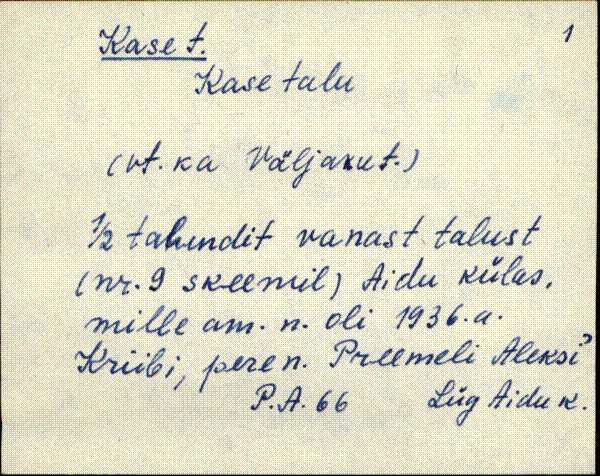 1
Kase t.
Kase talu
(vt. ka Väljaxut.)
1/2 talundit vanast talust
(nr. 9 skeemil) Aidu külas,
mille am. n. oli 1936. a.
Kriibi, pere n. Preemeli Aleksi"
P.A. 66 Lüg Aidu k.